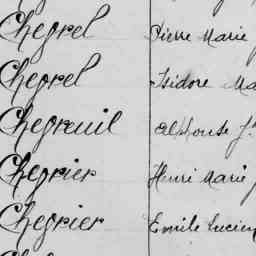 Chegrel Pierre Marie
Chegrel Isidore Ma
Chegreuil Alphonse J
Chegrier Henri Marie
Chegrier Emile Lucien